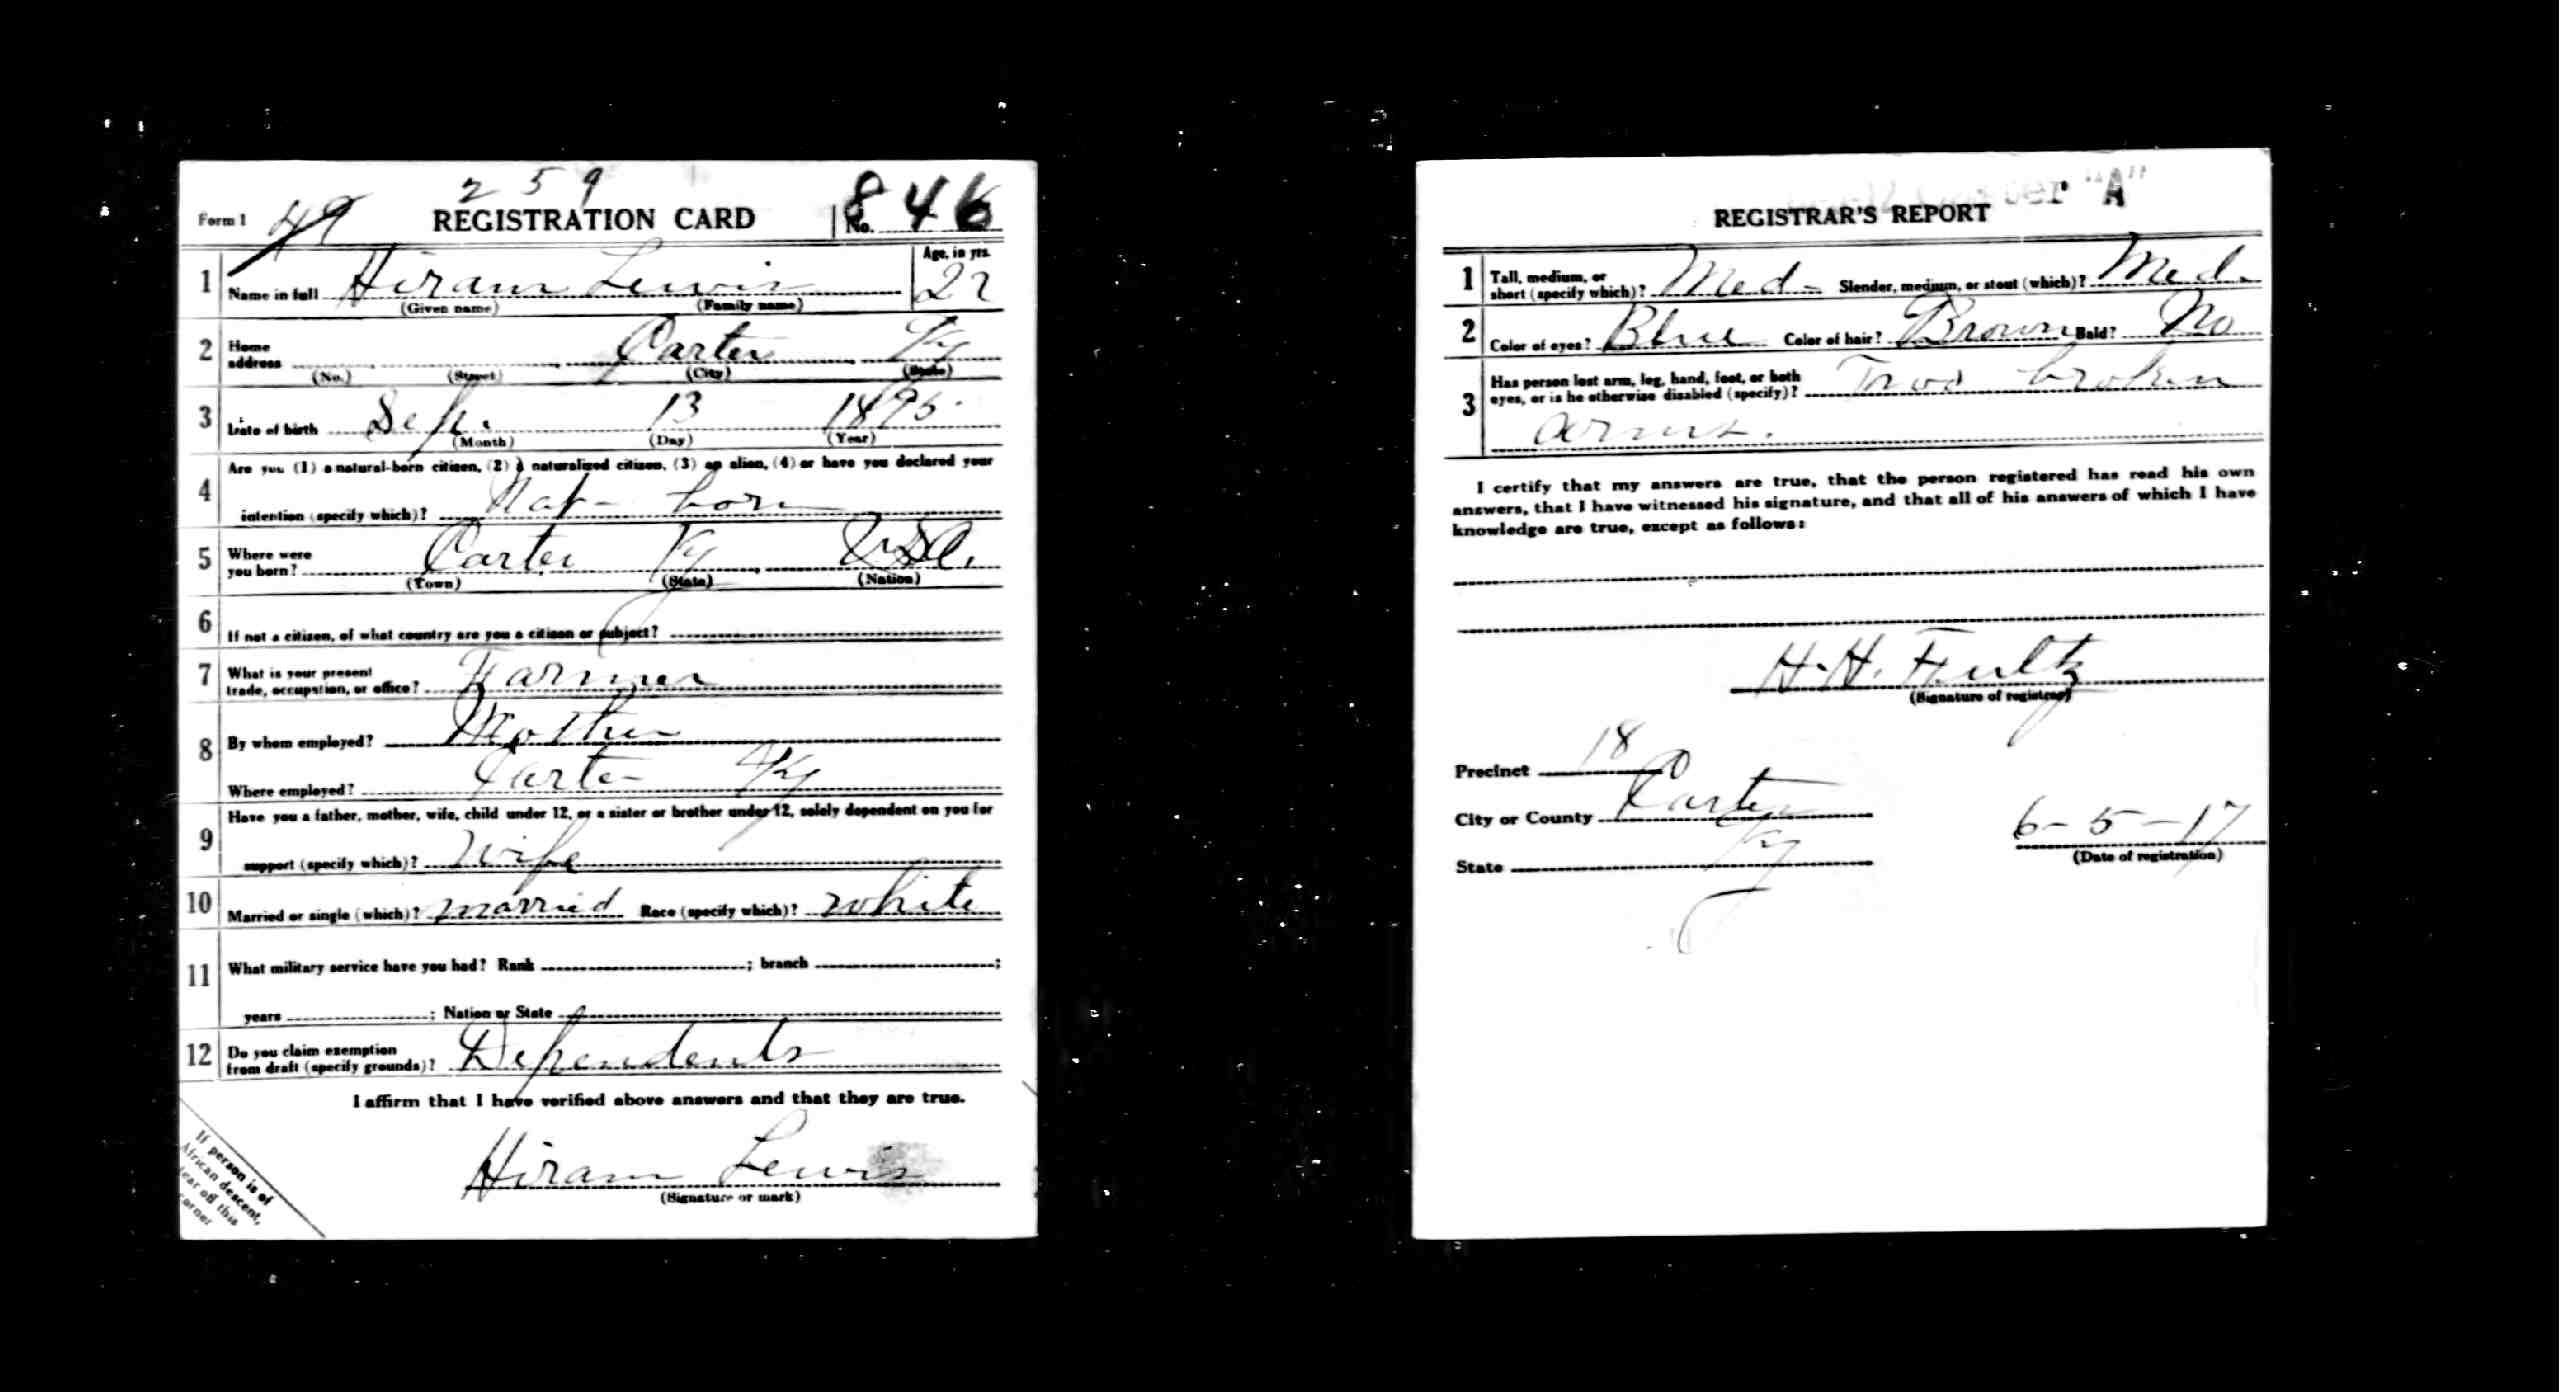 2 5 9
Form 1 49 REGISTRATION CARD No. 846
1 Name in full Hiram Lewis Age, in yrs. 22
(Given name) (Family name)
2 Home address Carter Ky
(No.) (Street) (City) (State)
3 Date of birth Sep. 13 1895
(Month) (Day) (Year)
4 Are you (1) a natural-born citizen, (2) a naturalized citizen, (3) an alien, (4) or have you declared your
intention (specify which)? Nat- born
5 Where were you born? Carter Ky USA.
(Town) (State) (Nation)
6 If not a citizen, of what country are you a citizen or subject?
7 What is your present trade, occupation, or office? Farmer
8 By whom employed? Mother
Where employed? Carter Ky
9 Have you a father, mother, wife, child under 12, or a sister or brother under 12, solely dependent on you for
support (specify which)? Wife
10 Married or single (which)? married Race (specify which)? white
11 What military service have you had? Rank ; branch ;
years ; Nation or State
12 Do you claim exemption from draft (specify grounds)? Dependents
I affirm that I have verified above answers and that they are true.
Hiram Lewis
(Signature or mark)
If person is of
African descent,
tear off this
corner
"A"
REGISTRAR'S REPORT
1 Tall, medium, or short (specify which)? Med- Slender, medium, or stout (which)? Med.
2 Color of eyes? Blue Color of hair? Brown Bald? No
3 Has person lost arm, leg, hand, foot, or both eyes, or is he otherwise disabled (specify)? Two broken
arms.
I certify that my answers are true, that the person registered has read his own
answers, that I have witnessed his signature, and that all of his answers of which I have
knowledge are true, except as follows:
H. H. Fultz
(Signature of registrar)
Precinct 18
City or County Carter
State Ky
6-5-17
(Date of registration)